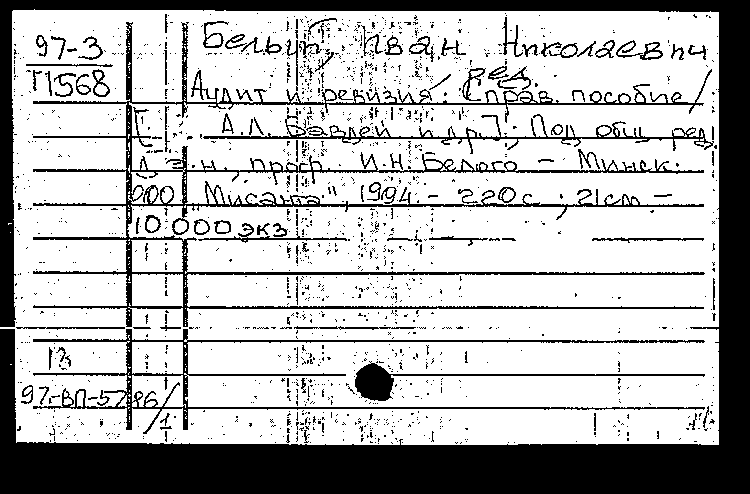 97-3
Т1568
Белый, Иван Николаевич
ред.
Аудит и ревизия: Справ. пособие /
[А.Л. Бавдей и др.]; Под общ. ред.
д.э.н., проф. И.Н. Белого – Минск:
ООО "Мисанта", 1994. – 220 с.; 21 см –
10 000 экз
13
97-ВП-5786/1